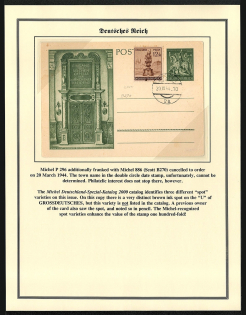 Deutsches Reich
POST
Michel P 296 additionally franked with Michel 886 (Scott B270) cancelled to order
on 20 March 1944. The town name in the double circle date stamp, unfortunately, cannot be
determined. Philatelic interest does not stop there, however.
The Michel Deutschland-Spezial-Katalog 2000 catalog identifies three different "spot"
varieties on this issue. On this copy there is a very distinct brown ink spot on the "U" of
GROSSDEUTSCHES, but this variety is not listed in the catalog. A previous owner
of the card also saw the spot, and noted so in pencil. The Michel-recognized
spot varieties enhance the value of the stamp one hundred-fold!